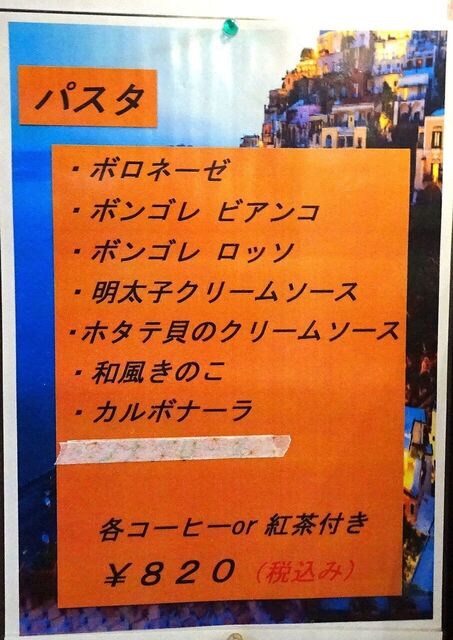 パスタ
・ボロネーゼ
・ボンゴレ ビアンコ
・ボンゴレ ロッソ
・明太子クリームソース
・ホタテ貝のクリームソース
・和風きのこ
・カルボナーラ
各コーヒーor 紅茶付き
￥８２０ （税込み）